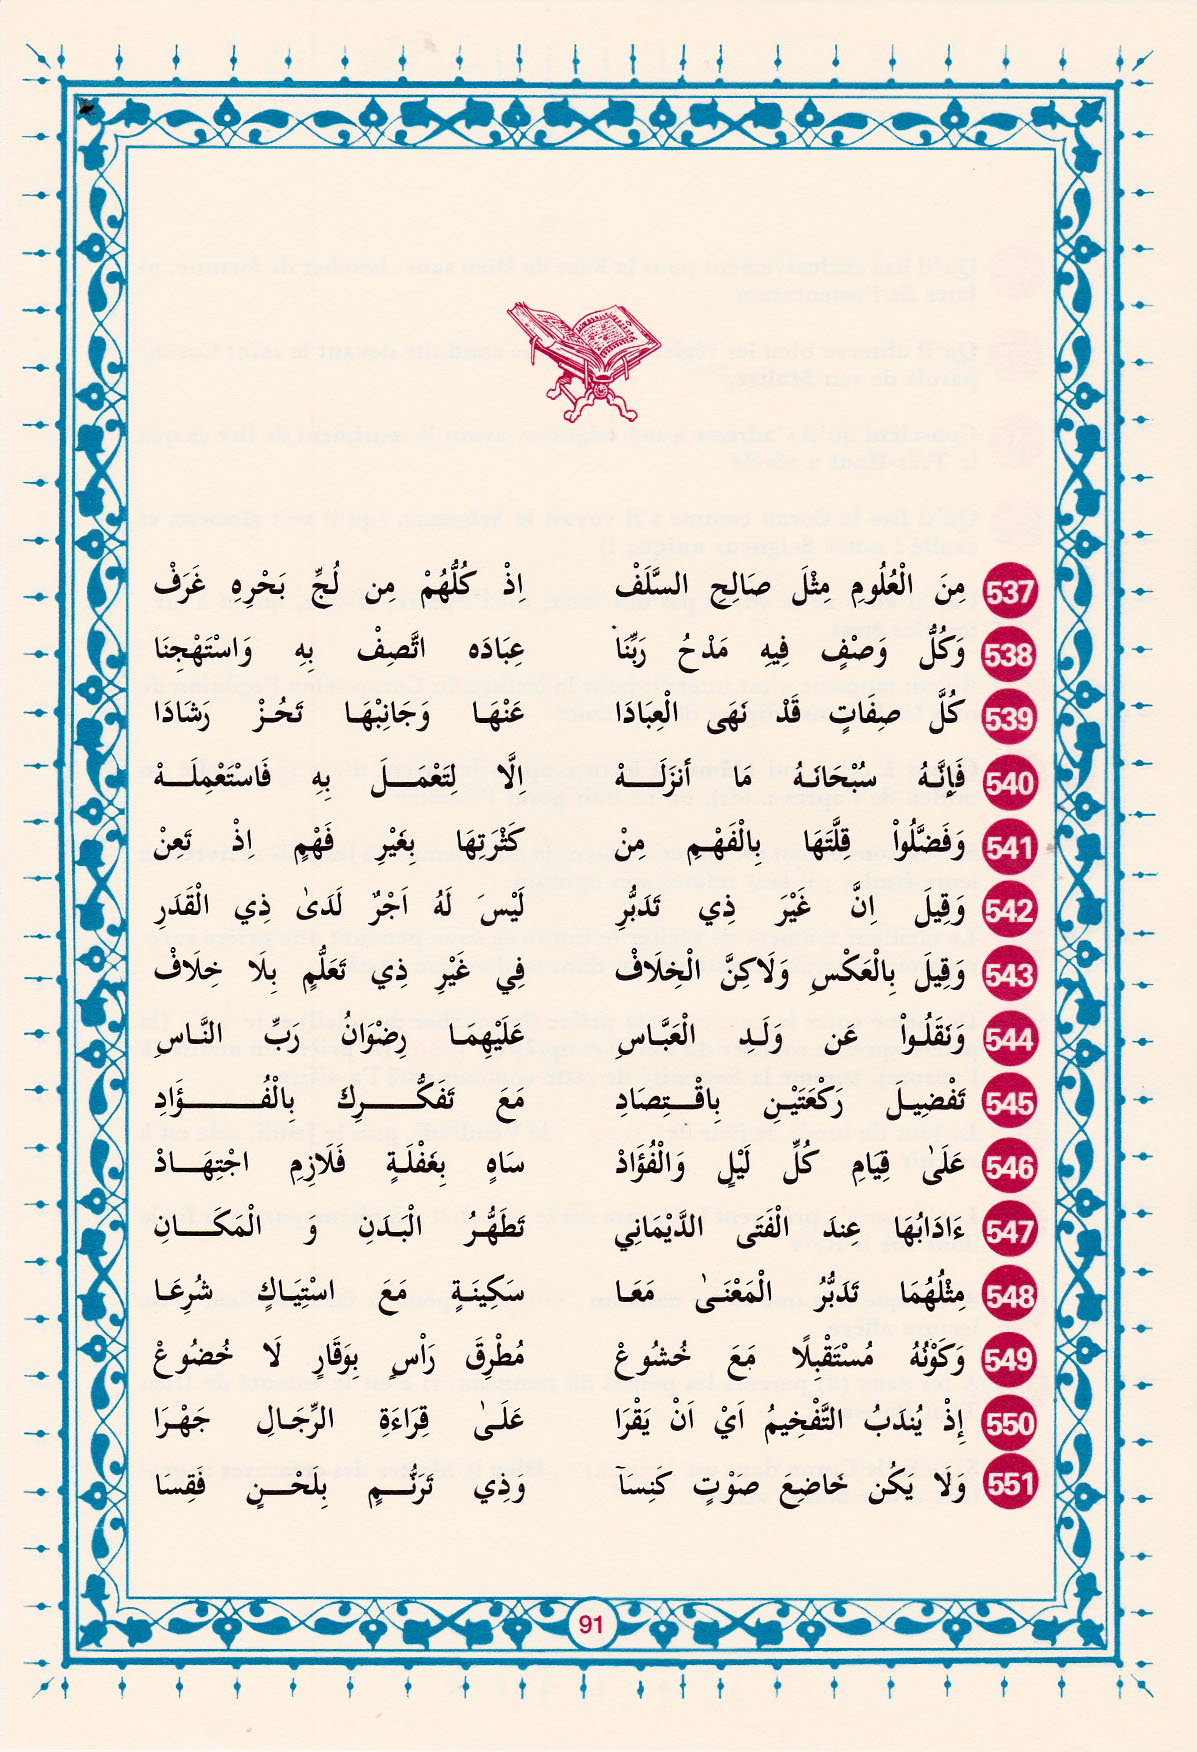 537 مِنَ الْعُلُومِ مِثْلَ صَالِحِ السَّلَفْ اِذْ كُلُّهُمْ مِن لُجِّ بَحْرِهِ غَرَفْ
538 وَكُلُّ وَصْفٍ فِيهِ مَدْحُ رَبِّنَا عِبَادَه اتَّصِفْ بِهِ وَاسْتَهْجِنَا
539 كُلَّ صِفَاتٍ قَدْ نَهَى الْعِبَادَا عَنْهَا وَجَانِبْهَا تَحُزْ رَشَادَا
540 فَإِنَّهُ سُبْحَانَهُ مَا أَنزَلَهْ اِلَّا لِتَعْمَلَ بِهِ فَاسْتَعْمِلَهْ
541 وَفَضَّلُواْ قِلَّتَهَا بِالْفَهْمِ مِنْ كَثْرَتِهَا بِغَيْرِ فَهْمٍ اذْ تَعِنْ
542 وَقِيلَ اِنَّ غَيْرَ ذِي تَدَبُّرِ لَيْسَ لَهُ اَجْرٌ لَدَىٰ ذِي الْقَدَرِ
543 وَقِيلَ بِالْعَكْسِ وَلَاكِنَّ الْخِلَافْ فِي غَيْرِ ذِي تَعَلُّمٍ بِلَا خِلَافْ
544 وَنَقَلُواْ عَن وَلَدِ الْعَبَّاسِ عَلَيْهِمَا رِضْوَانُ رَبِّ النَّاسِ
545 تَفْضِيلَ رَكْعَتَيْنِ بِاقْتِصَادِ مَعَ تَفَكُّرِكَ بِالْفُؤَادِ
546 عَلَىٰ قِيَامِ كُلِّ لَيْلٍ وَالْفُؤَادْ سَاهٍ بِغَفْلَةٍ فَلَازِمِ اجْتِهَادْ
547 ءَادَابُهَا عِندَ الْفَتَى الدَّيْمَانِي تَطَهُّرُ الْبَدَنِ وَ الْمَكَانِ
548 مِثْلُهُمَا تَدَبُّرُ الْمَعْنَىٰ مَعَا سَكِينَةٍ مَعَ اسْتِيَاكٍ شُرِعَا
549 وَكَوْنُهُ مُسْتَقْبِلًا مَعَ خُشُوعْ مُطْرِقَ رَأْسٍ بِوَقَارٍ لَا خُضُوعْ
550 إِذْ يُندَبُ التَّفْخِيمُ اَيْ اَنْ يَقْرَا عَلَىٰ قِرَاءَةِ الرِّجَالِ جَهْرَا
551 وَلَا يَكُن خَاضِعَ صَوْتٍ كَنِسَآ وَذِي تَرَنُّمٍ بِلَحْنٍ فَقِسَا
91